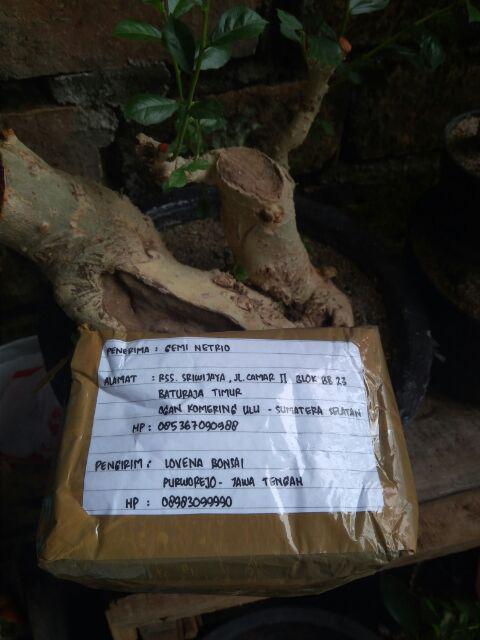 PENERIMA : GEMI NETRIO
ALAMAT : RSS. SRIWIJAYA, JL. CAMAR II BLOK BE 23
BATURAJA TIMUR
OGAN KOMERING ULU - SUMATERA SELATAN
HP : 085367090988
PENGIRIM : LOVENA BONSAI
PURWOREJO - JAWA TENGAH
HP : 08983099990